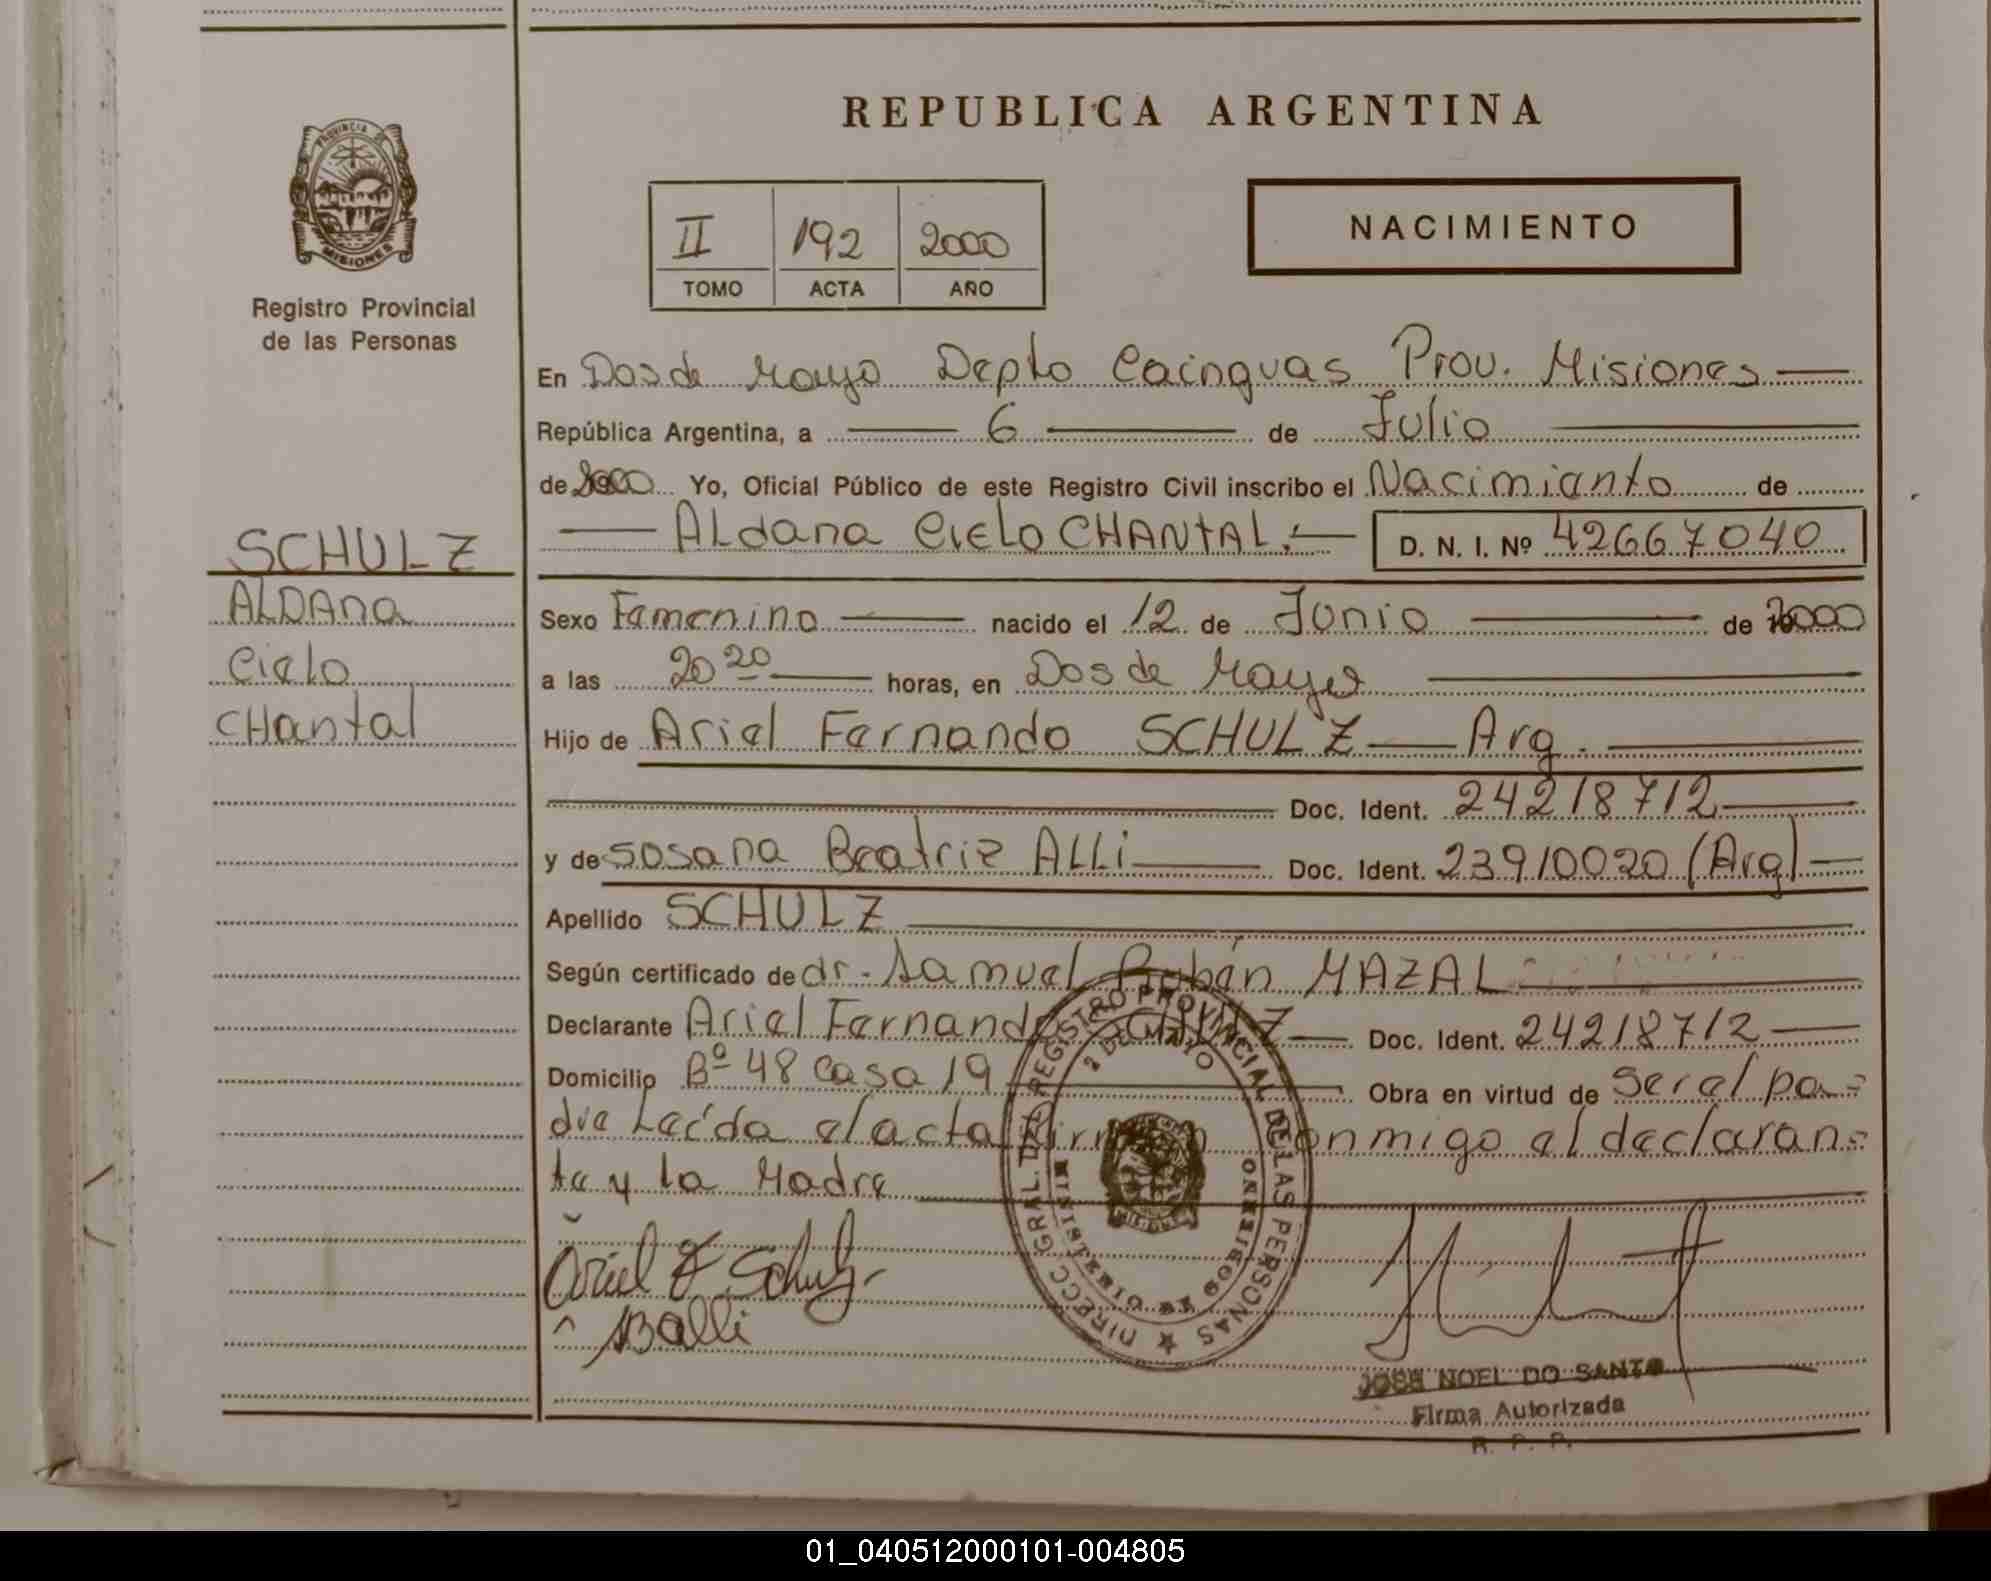 REPUBLICA ARGENTINA
PROVINCIA DE
MISIONES
Registro Provincial
de las Personas
II 192 2000
TOMO ACTA AÑO
NACIMIENTO
En Dos de Mayo Depto Cainguas Prov. Misiones
República Argentina, a 6 de Julio
de 2000 Yo, Oficial Público de este Registro Civil inscribo el Nacimiento de
ALdana Cielo CHANTAL. D. N. I. Nº 42667040
SCHULZ
ALDAna
Cielo
CHantal
Sexo Femenino nacido el 12 de Junio de 2000
a las 20 20 horas, en Dos de Mayo
Hijo de Ariel Fernando SCHULZ Arg.
Doc. Ident. 24218712
y de Sosana Beatriz ALLi Doc. Ident. 23910020 (Arg)
Apellido SCHULZ
Según certificado de dr. Samuel Rubén MAZAL
Declarante Ariel Fernando SCHULZ Doc. Ident. 24218712
Domicilio Bº 48 Casa 19 Obra en virtud de ser el pa=
dre Leída el acta firman conmigo el declaran=
te y la Madre
DIRECC. GRAL. DEL REGISTRO PROVINCIAL DE LAS PERSONAS
2 DE MAYO
MINISTERIO DE GOBIERNO
MISIONES
Ariel F Schulz
SBalli
JOSE NOEL DO SANTO
Firma Autorizada
R. P. P.
01_040512000101-004805